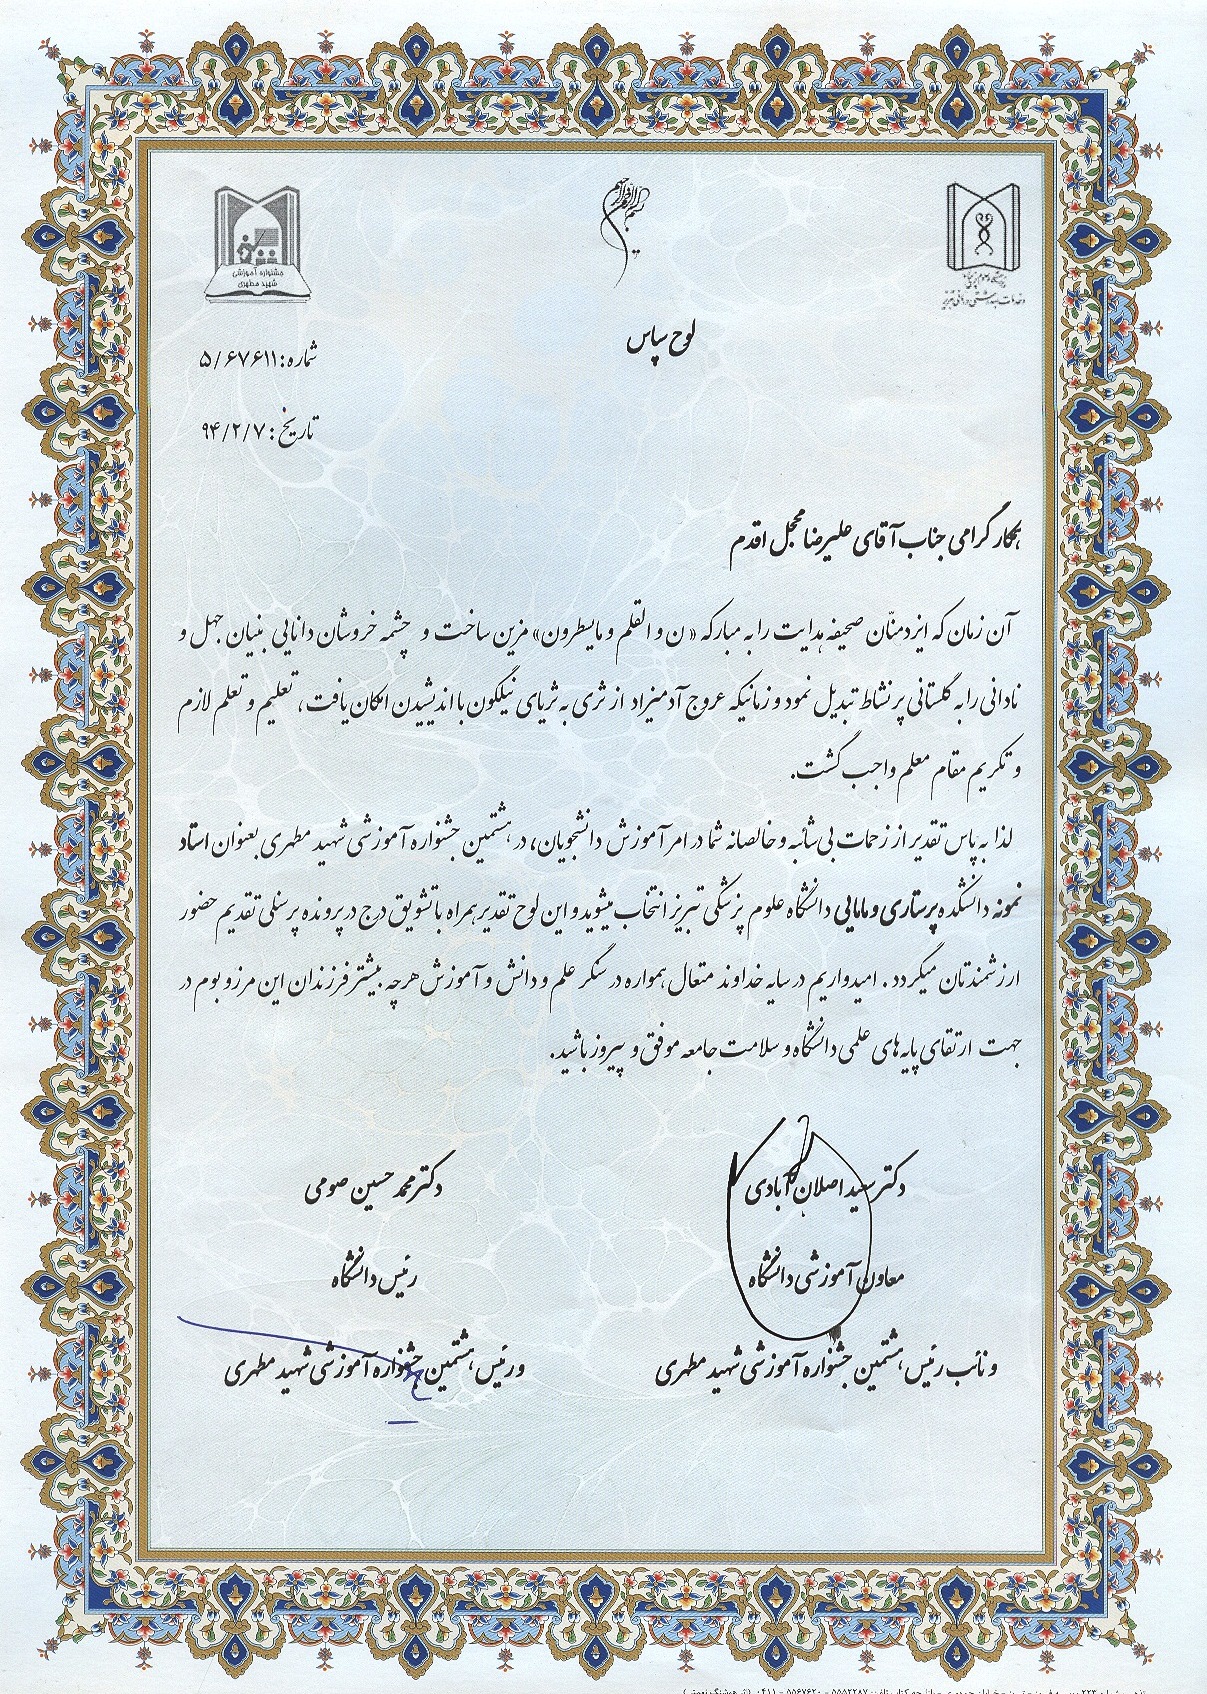 بسم الله الرحمن الرحیم
جشنواره آموزشی
شهید مطهری
و خدمات بهداشتی درمانی تبریز
لوح سپاس
شماره: ۵/۶۷۶۱۱
تاریخ: ۹۴/۲/۷
همکار گرامی جناب آقای علیرضا محجل اقدم
آن زمان که ایزد منّان صحیفه هدایت را به مبارکه « ن و القلم و مایسطرون» مزین ساخت و چشمه خروشان دانایی بنیان جهل و
نادانی را به گلستانی پر نشاط تبدیل نمود و زمانیکه عروج آدمیزاد از ثری به ثریای نیلگون با اندیشیدن امکان یافت، تعلیم و تعلم لازم
و تکریم مقام معلم واجب گشت.
لذا به پاس تقدیر از زحمات بی شائبه و خالصانه شما در امر آموزش دانشجویان، در هشتمین جشنواره آموزشی شهید مطهری بعنوان استاد
نمونه دانشکده پرستاری و مامایی دانشگاه علوم پزشکی تبریز انتخاب میشوید و این لوح تقدیر همراه با تشویق درج در پرونده پرسنلی تقدیم حضور
ارزشمندتان میگردد. امیدواریم در سایه خداوند متعال همواره در سنگر علم و دانش و آموزش هرچه بیشتر فرزندان این مرز و بوم در
جهت ارتقای پایه های علمی دانشگاه و سلامت جامعه موفق و پیروز باشید.
دکتر سعید اصلان آبادی
معاون آموزشی دانشگاه
و نائب رئیس هشتمین جشنواره آموزشی شهید مطهری
دکتر محمد حسین صومی
رئیس دانشگاه
و رئیس هشتمین جشنواره آموزشی شهید مطهری